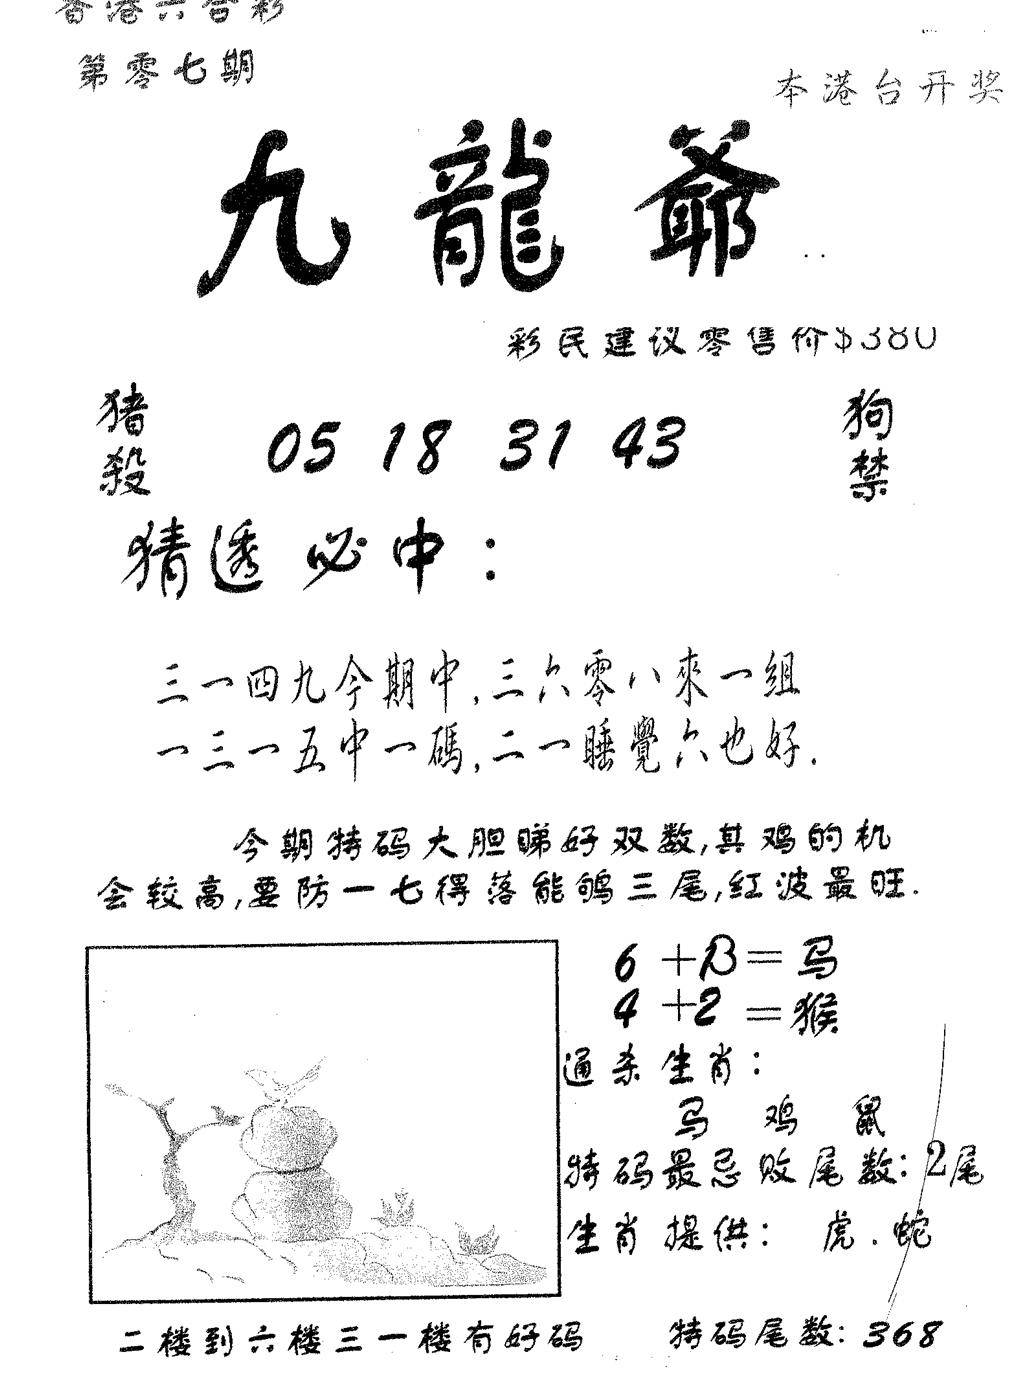 香港六合彩
第零七期
本港台开奖
九龍爺
彩民建议零售价$380
猪殺 05 18 31 43 狗禁
猜透必中：
三一四九今期中,三六零八來一組
一三一五中一碼,二一睡覺六也好.
今期特码大胆睇好双数,其鸡的机
会较高,要防一七得落能鸲三尾,红波最旺.
6+13=马
4+2=猴
通杀生肖：
马 鸡 鼠
特码最忌败尾数：2尾
生肖提供：虎.蛇
二楼到六楼三一楼有好码 特码尾数：368